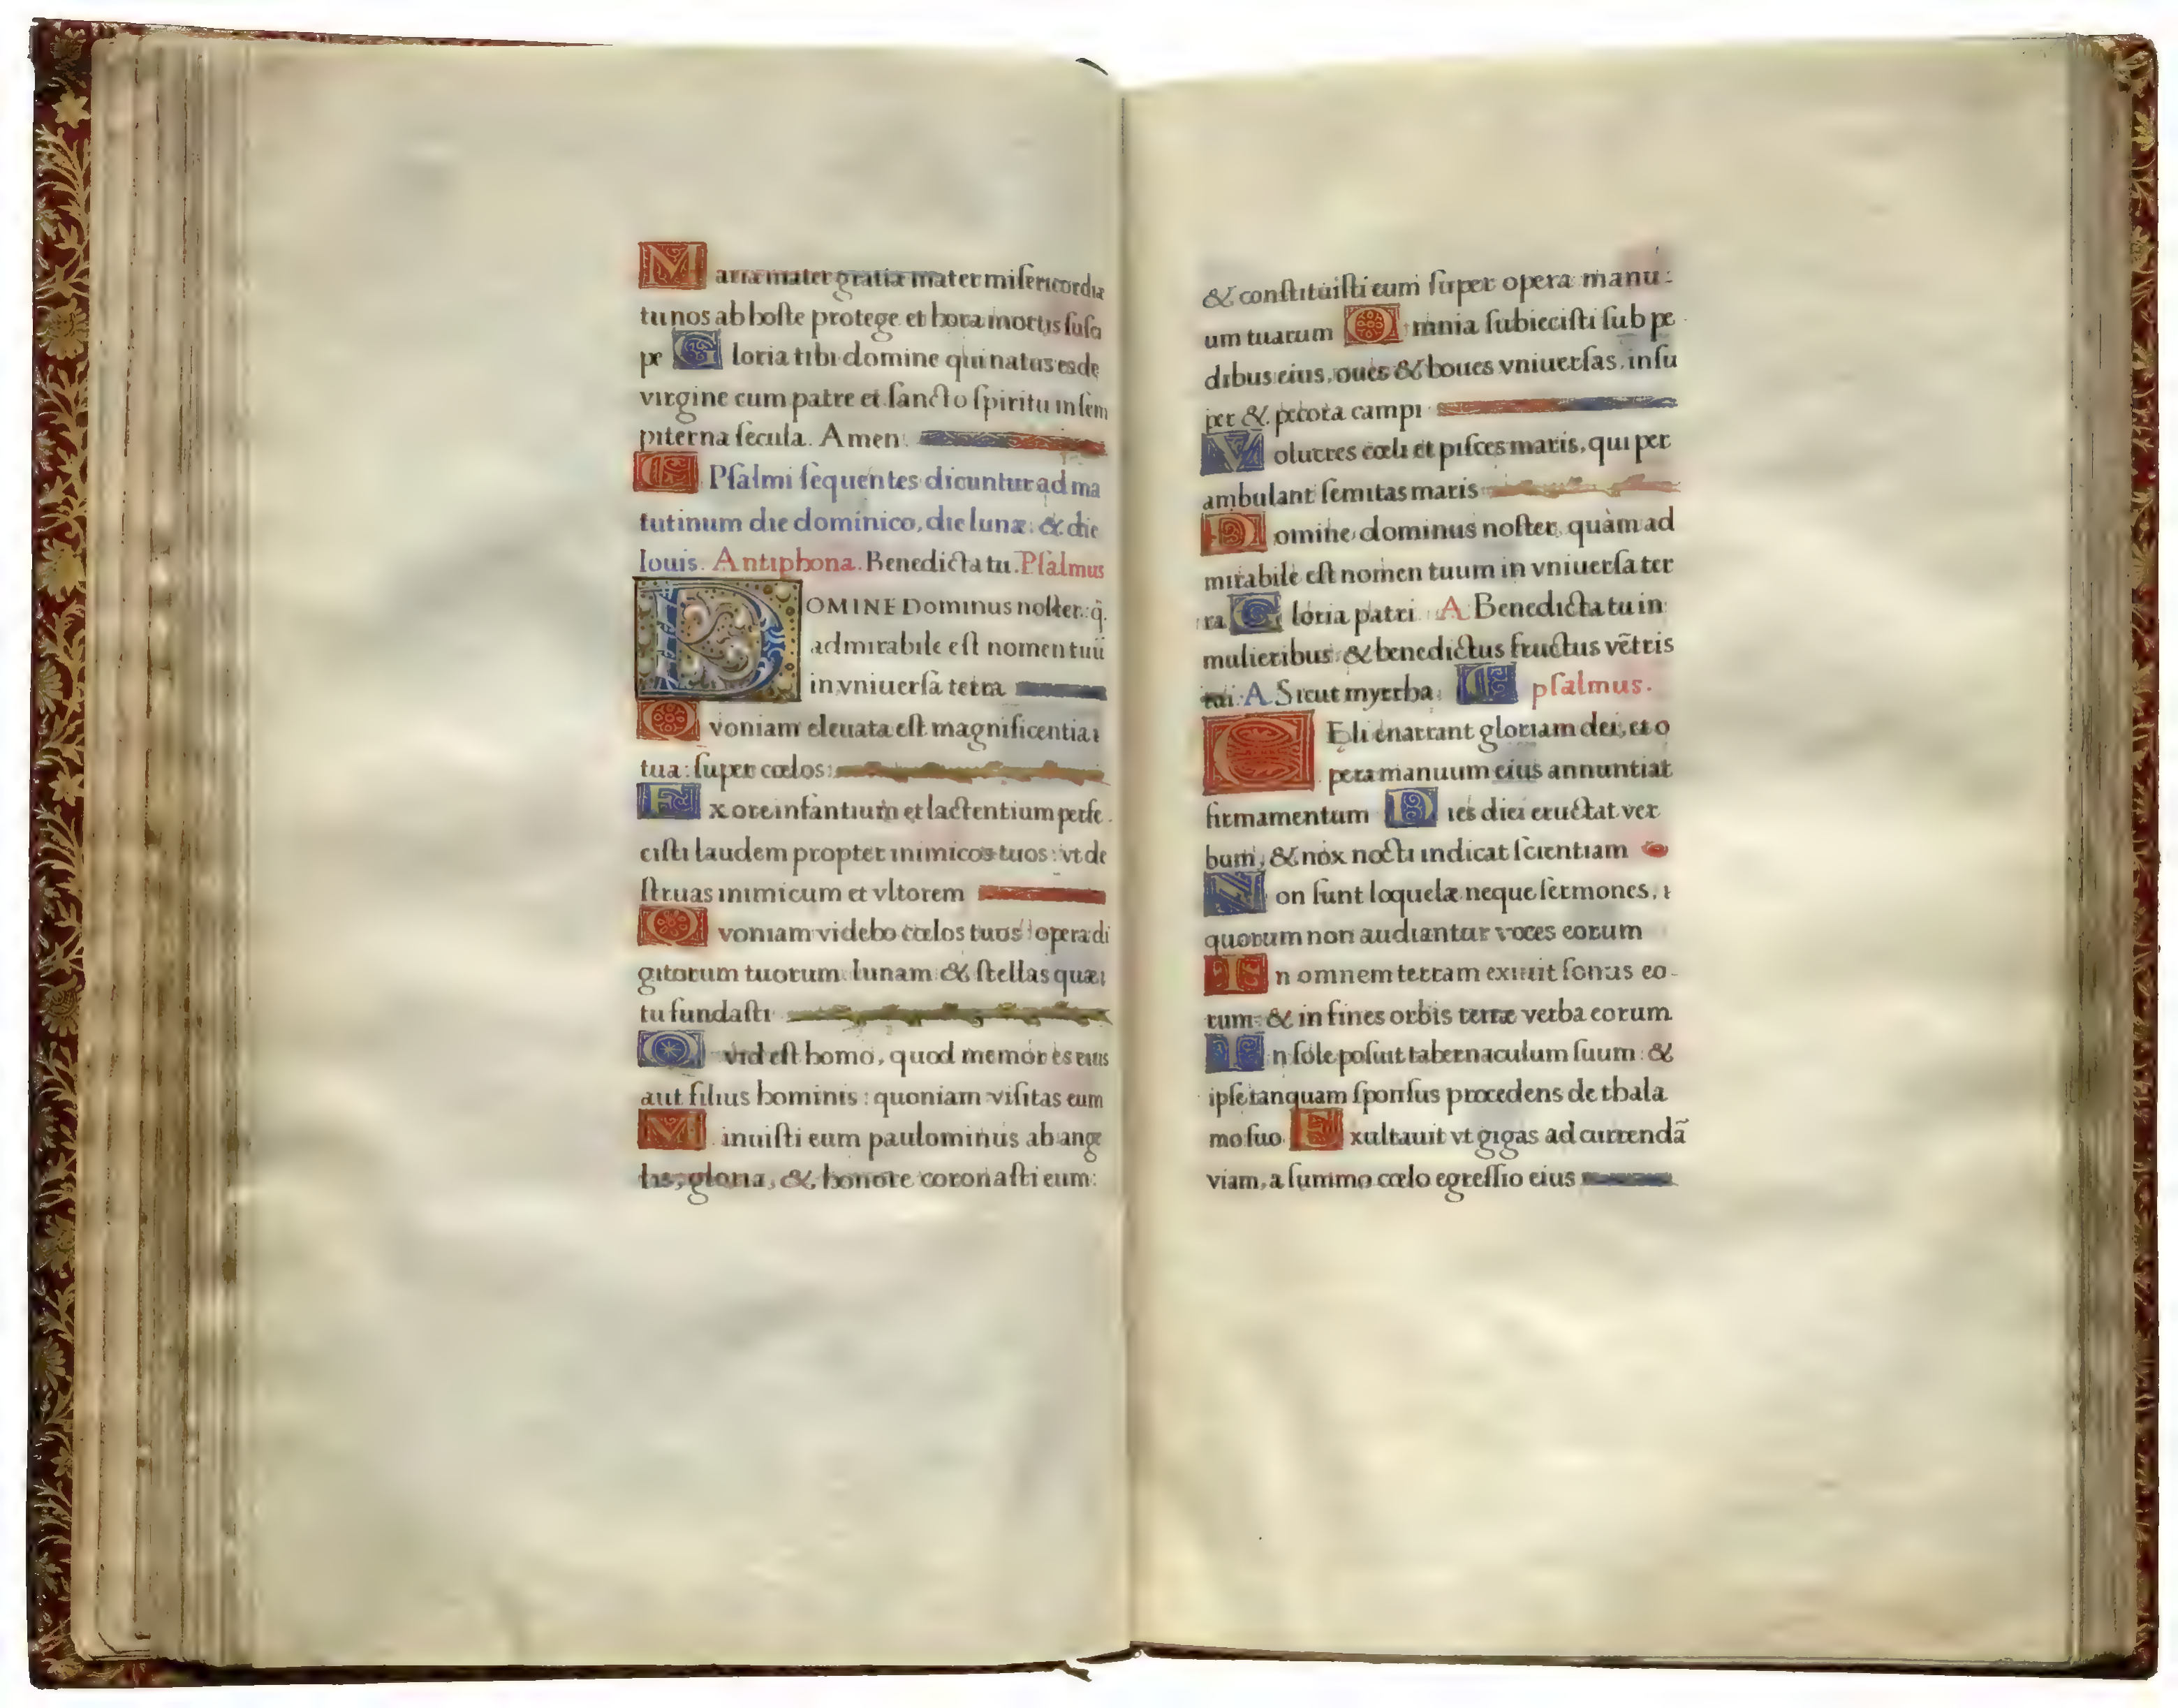 Maria mater gratiæ mater miſericordiæ
tu nos ab hoſte protege et hora mortis ſuſci
pe Gloria tibi domine qui natus es de
virgine cum patre et ſancto ſpiritu in ſem
piterna ſecula. Amen.
Pſalmi ſequentes dicuntur ad ma
tutinum die dominico, die lunæ. & die
Iouis. Antiphona. Benedicta tu. Pſalmus
DOMINE Dominus noſter: q̃
admirabile eſt nomen tuũ
in vniuerſa terra
Qvoniam eleuata eſt magnificentia
tua: ſuper cœlos:
Ex ore infantium et lactentium perfe
ciſti laudem propter inimicos tuos: vt de
ſtruas inimicum et vltorem
Qvoniam videbo cœlos tuos opera di
gitorum tuorum. lunam & ſtellas quæ
tu fundaſti
Qvid eſt homo, quod memor es eius
aut filius hominis: quoniam viſitas eum
Minuiſti eum paulominus ab ange
lis, gloria, & honore coronaſti eum:
& conſtituiſti eum ſuper opera manu-
um tuarum Omnia ſubieciſti ſub pe
dibus eius, oues & boues vniuerſas, inſu
per & pecora campi
Volucres cœli et piſces maris, qui per
ambulant ſemitas maris
Domine dominus noſter, quàm ad
mirabile eſt nomen tuum in vniuerſa ter
ra Gloria patri A Benedicta tu in
mulieribus: & benedictus fructus vẽtris
tui. A Sicut myrrha. pſalmus.
CEli enarrant gloriam dei, et o
pera manuum eius annuntiat
firmamentum Dies diei eructat ver
bum, & nox nocti indicat ſcientiam
Non ſunt loquelæ neque ſermones,
quorum non audiantur voces eorum
In omnem terram exiuit ſonus eo-
rum: & in fines orbis terræ verba eorum
In ſole poſuit tabernaculum ſuum: &
ipſe tanquam ſponſus procedens de thala
mo ſuo Exultauit vt gigas ad currendã
viam, a ſummo cœlo egreſſio eius